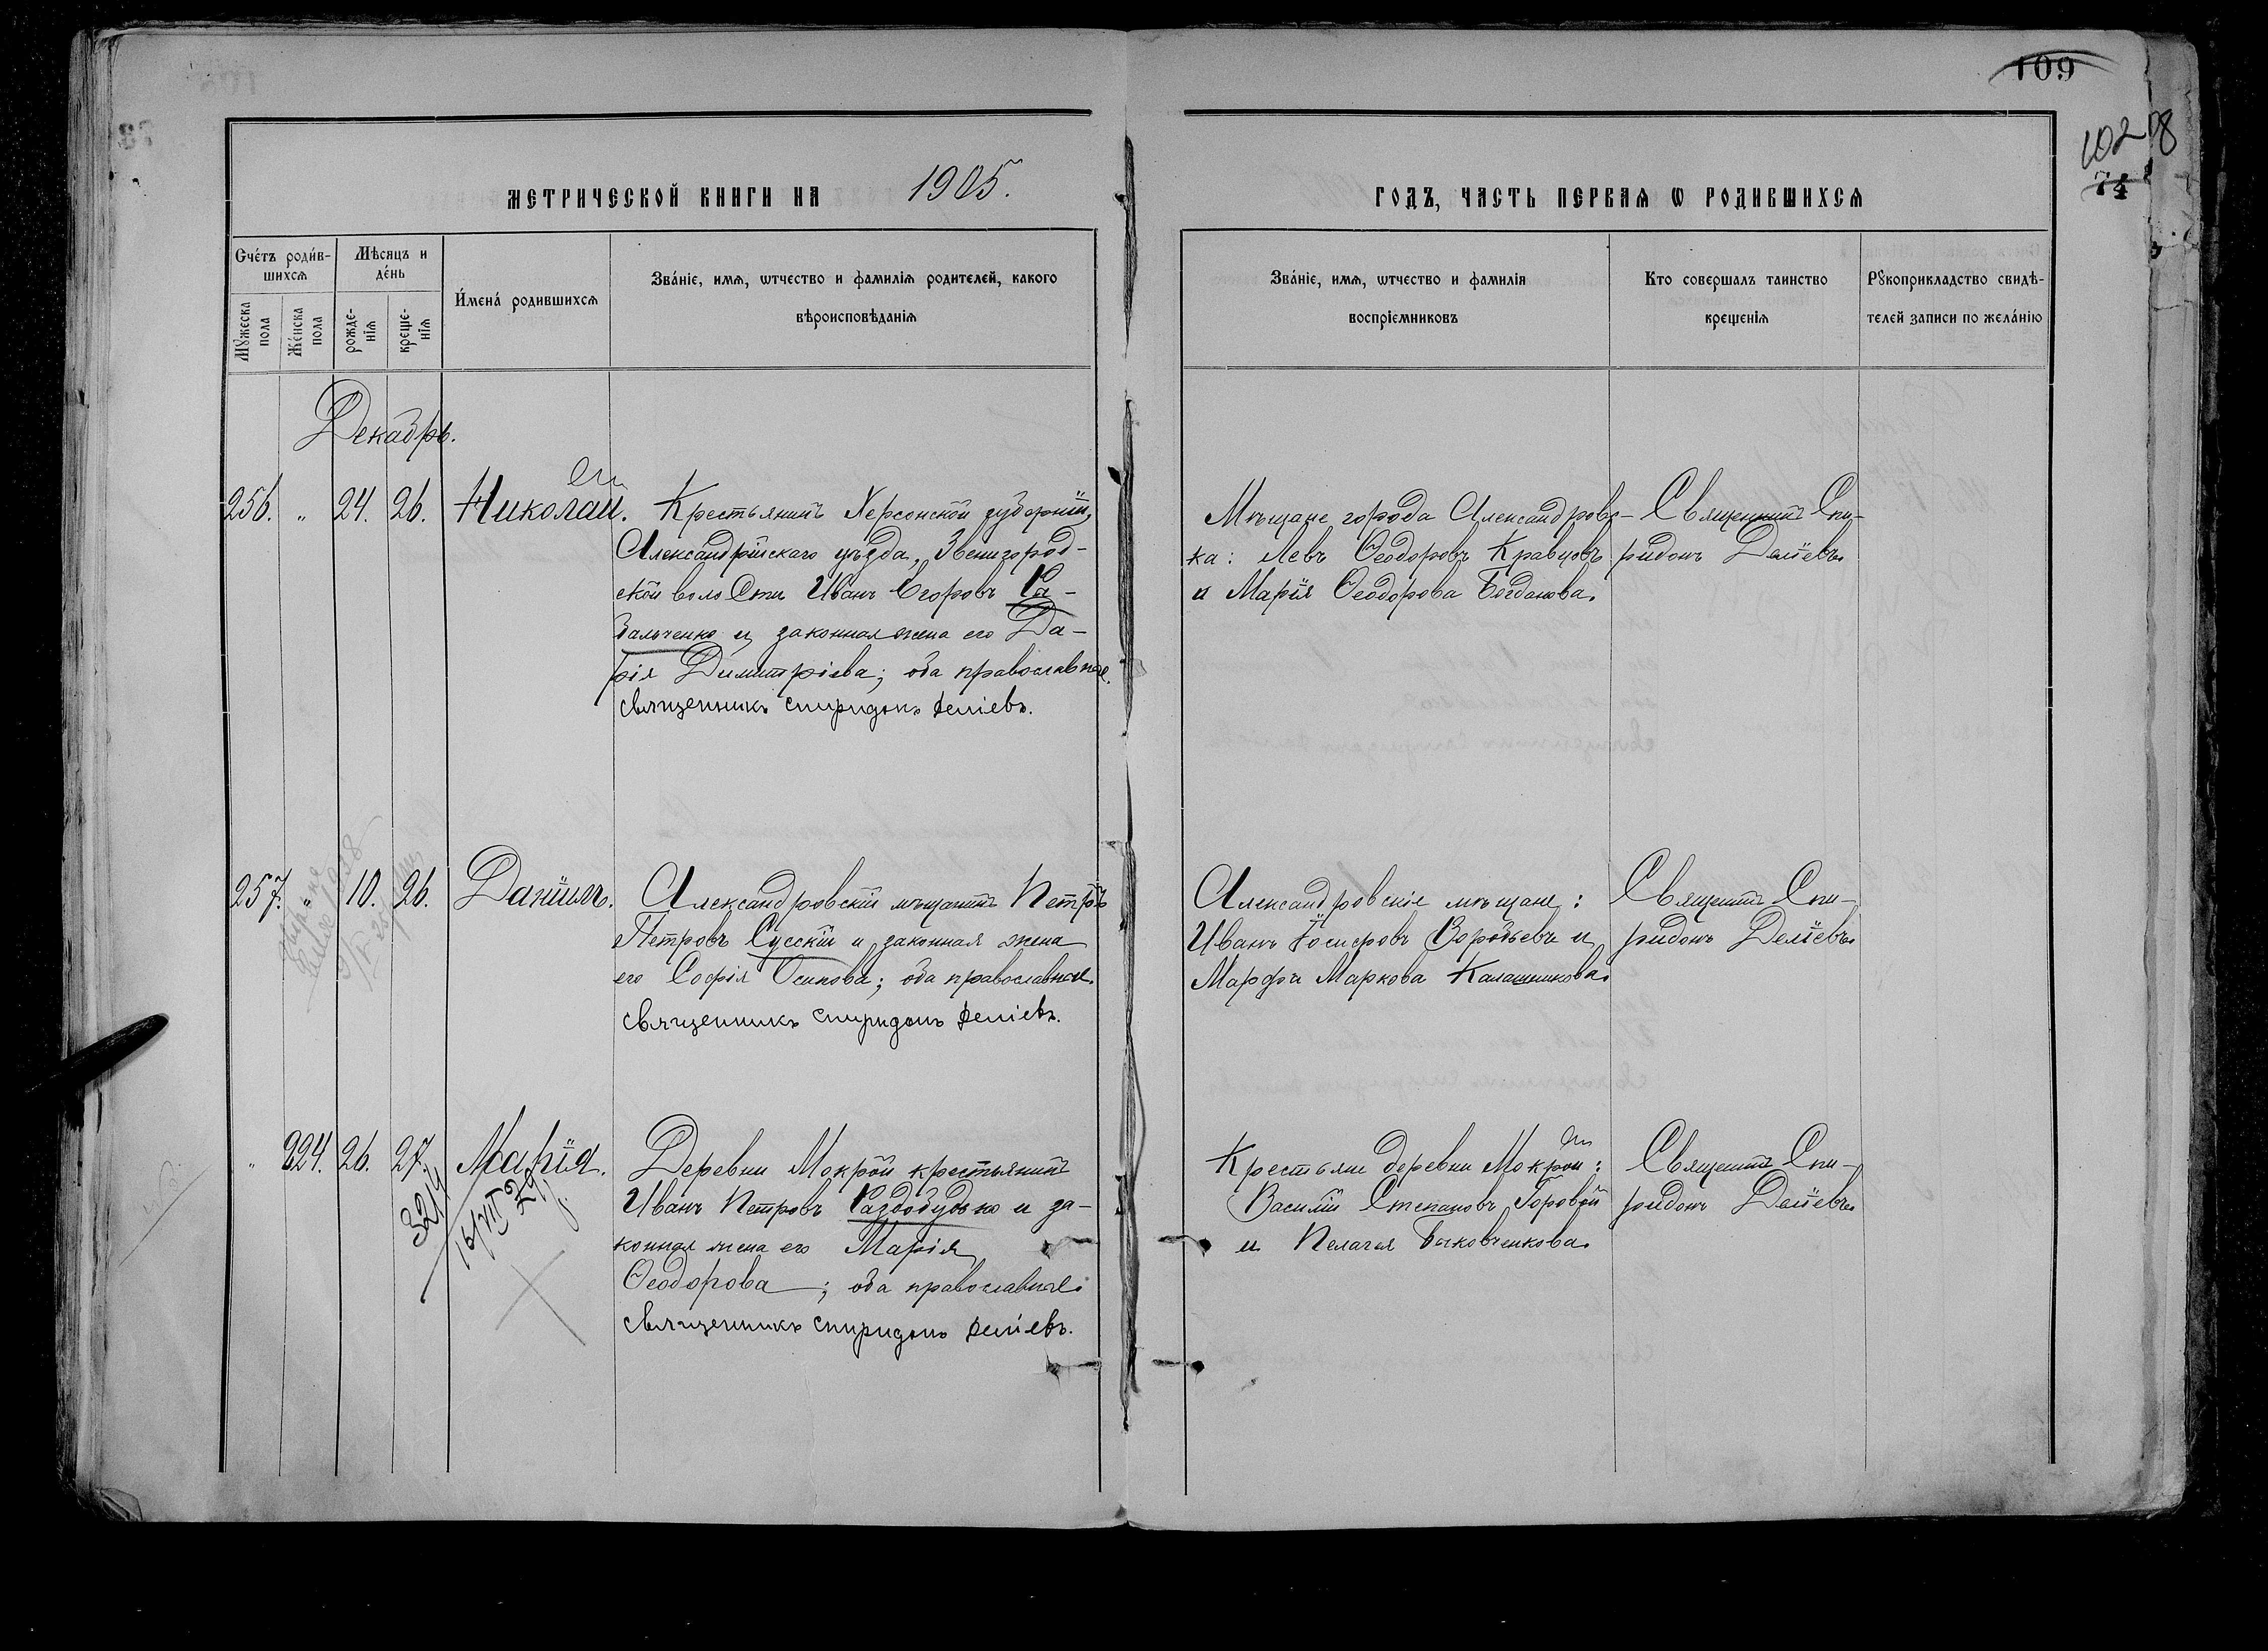 109
102
МЕТРИЧЕСКОЙ КНИГИ НА 1905.
ГОДЪ, ЧАСТЬ ПЕРВАЯ Ѡ РОДИВШИХСЯ
Счётъ роди́в-
шихся
Мѣсяцъ и
де́нь
Мꙋжеска
пола
Же́нска
пола
рожде-
нія
креще-
нія
И҆мена́ родившихся
Зва́ніе, имя, ѡтчество и фамилія родителей, какого
вѣроисповѣданія
Зва́ніе, имя, ѡтчество и фамилія
воспріемниковъ
Кто совершалъ таинство
крещенія
Рꙋкоприкладство свидѣ-
телей записи по жела́нію
Декабрь.
256. " 24. 26. Николай.
Крестьянинъ Херсонской губерніи,
Александрійскаго уѣзда, Звенигород-
ской волости Иванъ Егоровъ Га-
вальченко и законная жена его Да-
рія Димитріева; оба православные.
Священникъ Спиридонъ Деліевъ.
Мѣщане города Александровс-
ка: Левъ Ѳеодоровъ Кравцовъ
и Марія Ѳеодорова Богданова.
Священникъ Спи-
ридонъ Деліевъ.
257. " 10. 26. Даніилъ.
Александровскій мѣщанинъ Петръ
Петровъ Сусскій и законная жена
его Софія Осипова; оба православные.
Священникъ Спиридонъ Деліевъ.
Александровскіе мѣщане:
Иванъ Іосифовъ Воробьевъ и
Марѳа Маркова Калашникова.
Священникъ Спи-
ридонъ Деліевъ.
" 224. 26. 27. Марія.
3214
16/VII 29 г.
Деревни Мокрой крестьянинъ
Иванъ Петровъ Раздобудько и за-
конная жена его Марія
Ѳеодорова; оба православные.
Священникъ Спиридонъ Деліевъ.
Крестьяне деревни Мокрой:
Василій Степановъ Горовой
и Пелагея Быковченкова.
Священникъ Спи-
ридонъ Деліевъ.